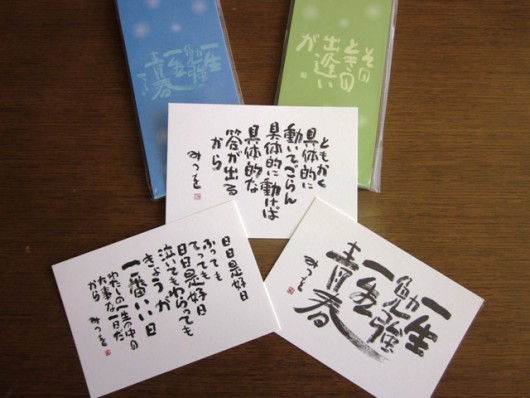 一生
勉強
一生
青春
みつを
その
ときの
出逢い
が
ともかく
具体的に
動いてごらん
具体的に動けば
具体的な
答が出る
から
みつを
日日是好日
ふっても
てっても
日日是好日
泣いてもわらっても
きょうが
一番いい日
わたしの一生の中の
大事な一日だ
から
みつを
一生
勉強
一生
青春
みつを